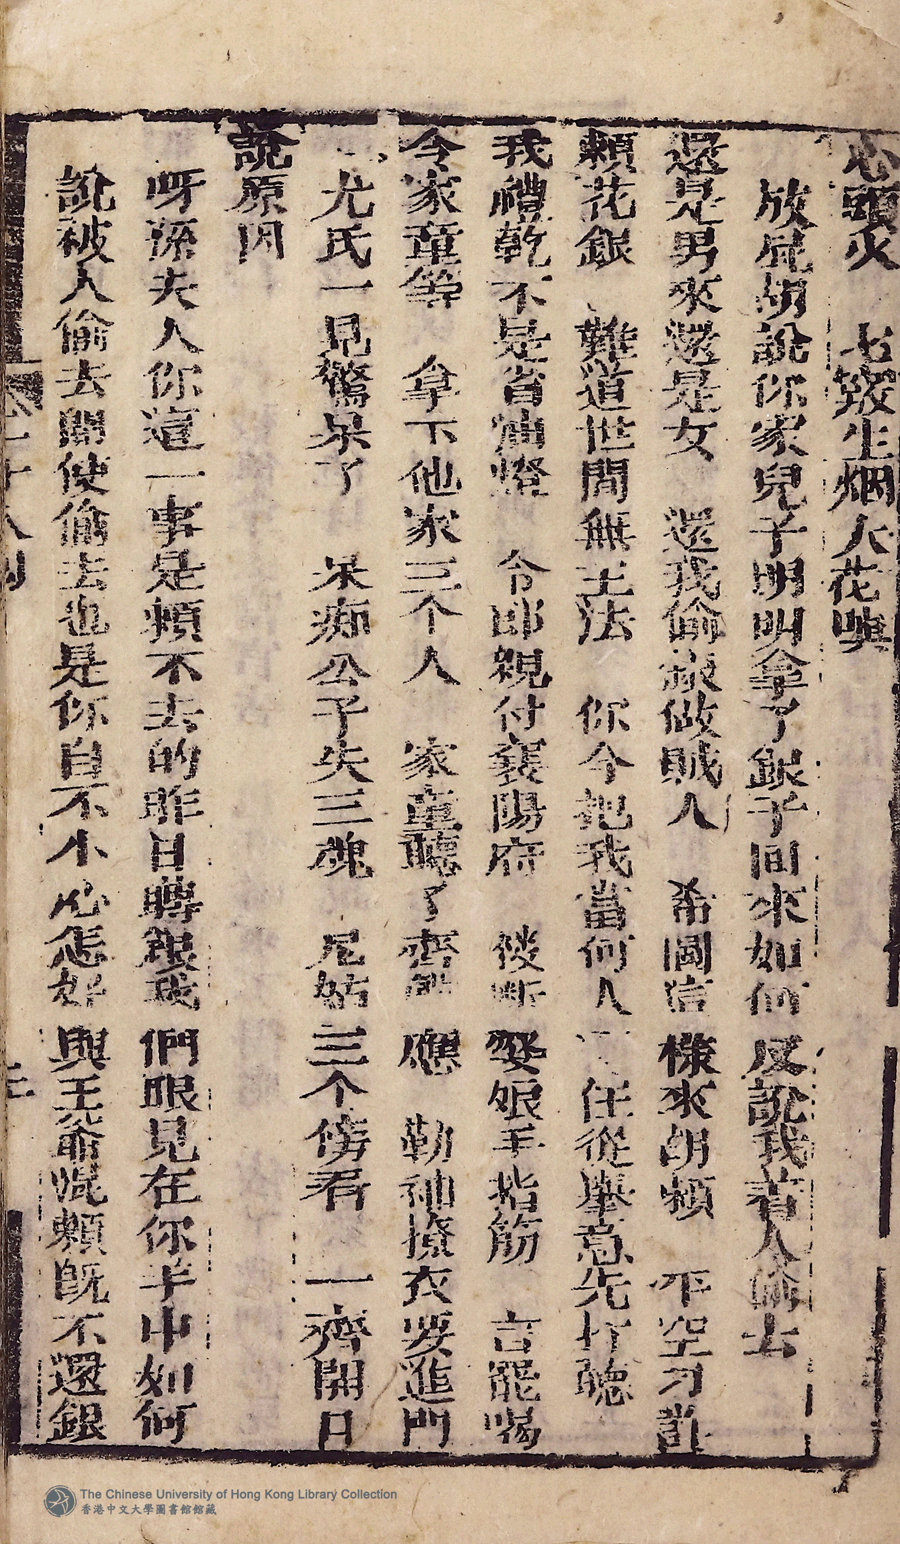 心頭火　七竅生烟大花喚
放屁胡說你家兒子明明拿了銀子回來如何反說我着人偷去
還是男來還是女　還我偷寂做賊人　希圖這樣來胡賴　平空刁詐
賴花銀　難道世間無王法　你今把我當何人　任從舉意先打聽
我禮乾不是省油燈　令郎親付襄陽府　娶娘手指筋　言罷喝
令家童等　拿下他家三个人　家童聽了齊　應　勒袖撩衣要進門
尤氏一見驚呆了　呆痴公子失三魂　尼姑三个傍看　一齊開口
說原因
呀孫夫人你這一事是賴不去的昨日聘銀我們眼見在你手中如何
說被人偷去關使偷去也是你自不小心怎好與王爺混賴既不還銀
二十八
The Chinese University of Hong Kong Library Collection
香港中文大學圖書館館藏